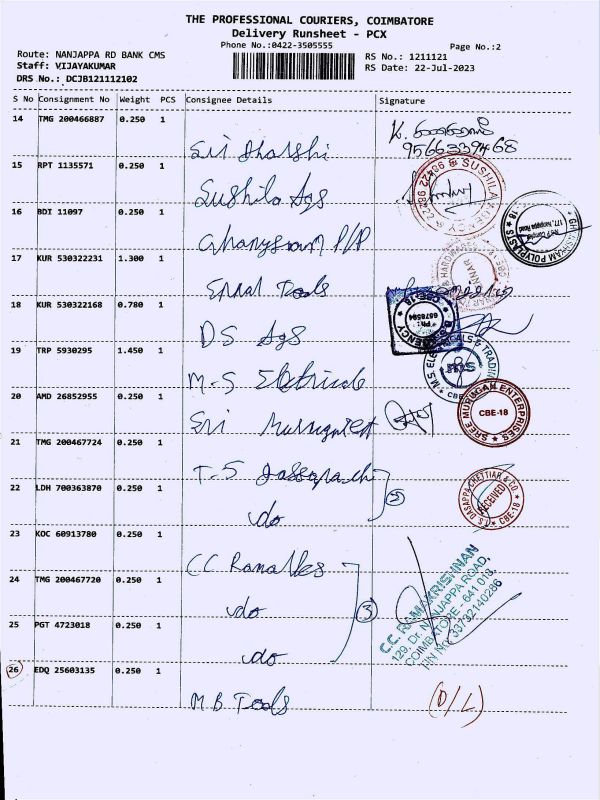 THE PROFESSIONAL COURIERS, COIMBATORE
Delivery Runsheet - PCX
Phone No.:0422-3505555
Page No.:2
Route: NANJAPPA RD BANK CMS
Staff: VIJAYAKUMAR
DRS No.: DCJB121112102
RS No.: 1211121
RS Date: 22-Jul-2023
S No Consignment No Weight PCS Consignee Details Signature
14 TMG 200466887 0.250 1
Sri Dharshi
9566339468
15 RPT 1135571 0.250 1
Sushila Ags
SUSHILA AGENCY
16 BDI 11097 0.250 1
Ghanysram P/P
GHANSHYAM POLYPLAST
177, Nanjappa Road
17 KUR 530322231 1.300 1
Tools
18 KUR 530322168 0.780 1
DS Ags
AGENCY
CBE-18
PH : 6578594
19 TRP 5930295 1.450 1
M-S Eletricale
M.S. ELECTRICALS & TRADING
20 AMD 26852955 0.250 1
Sri
SREE MURUGAN ENTERPRISES
CBE-18
21 TMG 200467724 0.250 1
T-S
22 LDH 700363870 0.250 1
do
2
T.S. DASAPPA CHETTIAR & CO.
RECEIVED
CBE-18
23 KOC 60913780 0.250 1
C.C
24 TMG 200467720 0.250 1
do
3
25 PGT 4723018 0.250 1
do
C.C. RAMAKRISHNAN
129, Dr. NANJAPPA ROAD,
COIMBATORE - 641 018.
TIN No: 33732140286
26 EDQ 25603135 0.250 1
M B Tools
(D/L)